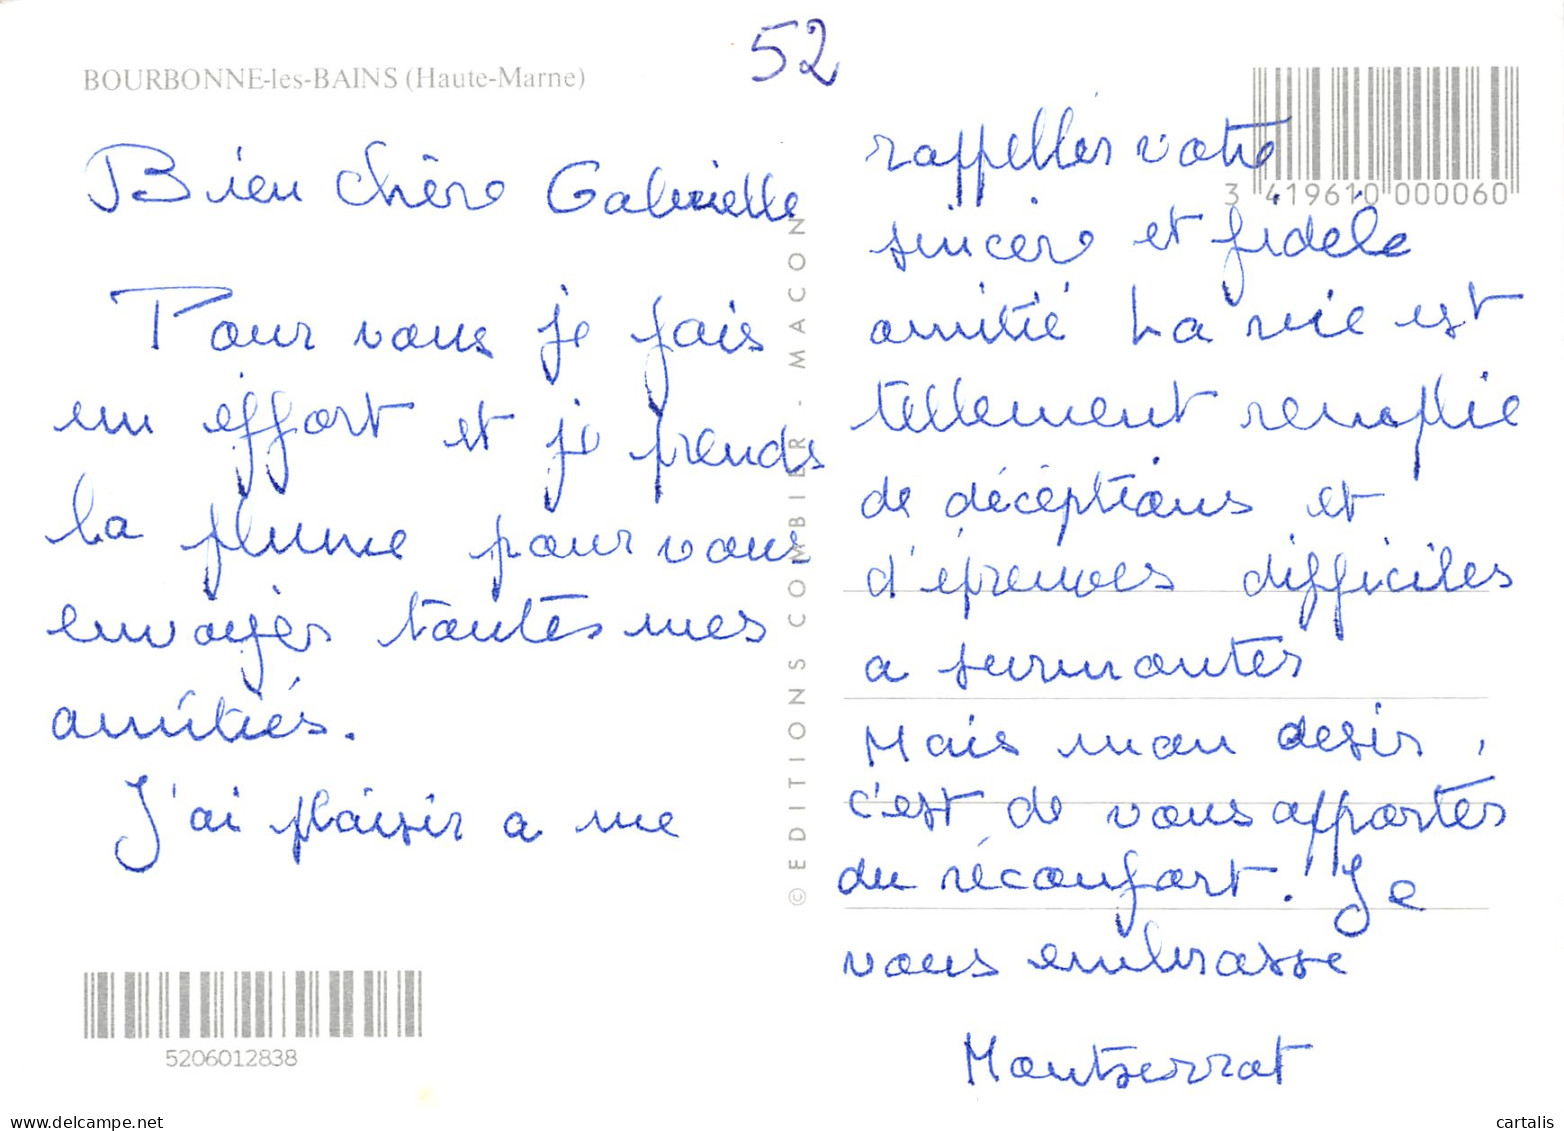 BOURBONNE-les-BAINS (Haute-Marne)
52
Bien chère Gabrielle
Pour vous je fais
un effort et je prends
la plume pour vous
envoyér toutes mes
amitiés.
J'ai plaisir a me
5206012838
© EDITIONS COMBIER - MACON
3 419610 000060
rappellér votre
sincère et fidèle
amitié La vie est
tellement remplie
de décéptions et
d'épreuves difficiles
a surmonter
Mais mon desir,
c'est de vous apporter
du réconfort. Je
vous embrasse
Montserrat
www.delcampe.net
cartalis